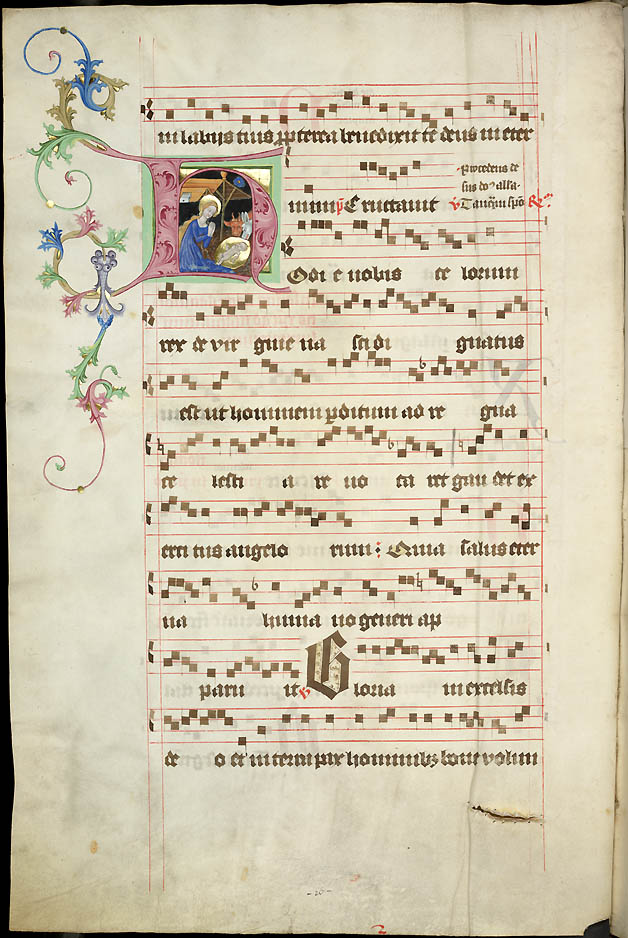 in labijs tuis ꝓpterea benedixit te deus in eter
num ℣ Eructauit
Tanqͣm spōs ℟
Hodie nobis celorum
rex de virgine nasci dignatus
est ut hominem ꝑditum ad regna
celestia reuocaret gaudet ex
ercitus angelorum : Quia salus eter
na humano generi ap
paruit ℣ Gloria in excelsis
deo et in terra pax hominibꝫ bone volun